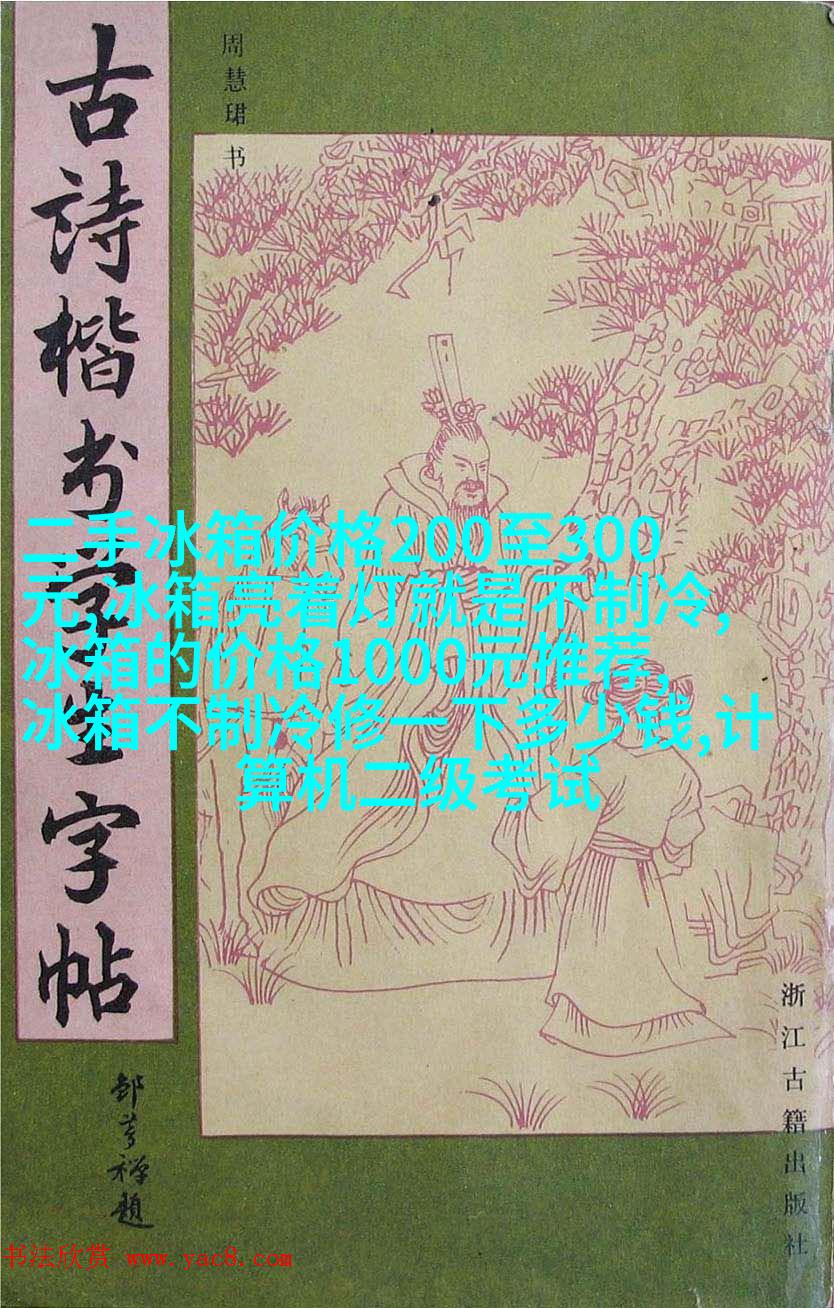 古詩楷书学生字帖
周慧珺书
二手冰箱价格200至300
元,冰箱亮着灯就是不制冷,
冰箱的价格1000元推荐,
冰箱不制冷修一下多少钱,计
算机二级考试
浙江古籍出版社
邹梦禅题
书法欣赏 www.yac8.com